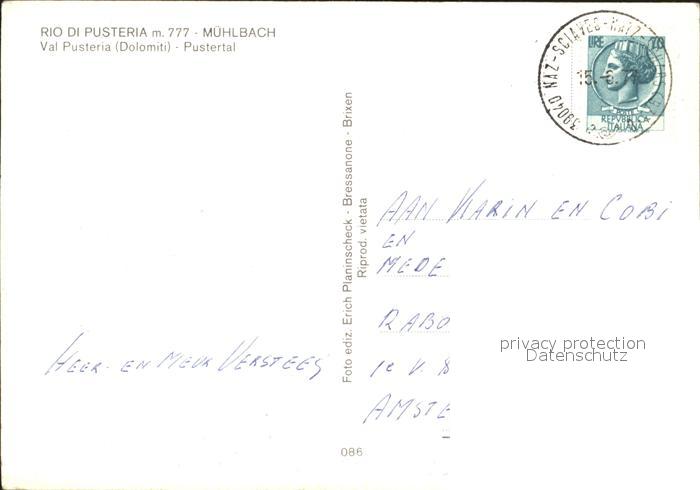 RIO DI PUSTERIA m. 777 - MÜHLBACH
Val Pusteria (Dolomiti) - Pustertal
39040 NAZ-SCIAVES - NATZ
15.-6.
LIRE 70
POSTE
REPVBBLICA
ITALIANA
Foto ediz. Erich Planinscheck - Bressanone - Brixen
Riprod. vietata
AAN KARIN EN COBI
EN
MEDE
RABO
1e V. B
AMSTE
HEER- EN MEVR VERSTEEG
privacy protection
Datenschutz
086